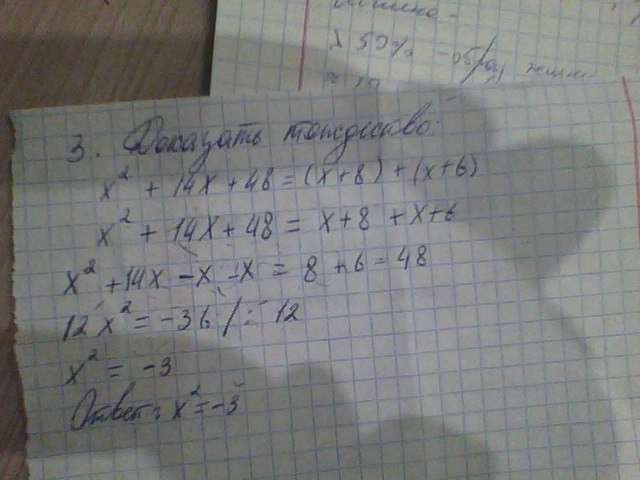 λ 50% -обряд
3. Доказать тождество:
x² + 14x + 48 = (x+8) + (x+6)
x² + 14x + 48 = x+8 + x+6
x² + 14x - x - x = 8 + 6 - 48
12x² = -36 / : 12
x² = -3
Ответ: x² = -3